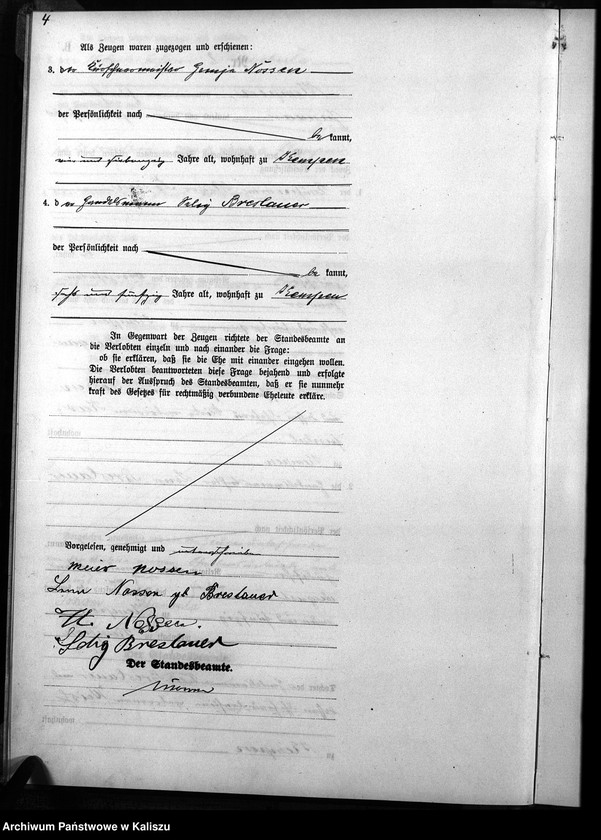 4
Als Zeugen waren zugezogen und erschienen:
3. der Kürschnermeister Nossen
der Persönlichkeit nach
bekannt,
vier und siebenzig Jahre alt, wohnhaft zu Kempen
4. der Handelsmann Selig Breslauer
der Persönlichkeit nach
bekannt,
sechs und fünfzig Jahre alt, wohnhaft zu Kempen
In Gegenwart der Zeugen richtete der Standesbeamte an
die Verlobten einzeln und nach einander die Frage:
ob sie erklären, daß sie die Ehe mit einander eingehen wollen.
Die Verlobten beantworteten diese Frage bejahend und erfolgte
hierauf der Ausspruch des Standesbeamten, daß er sie nunmehr
kraft des Gesetzes für rechtmäßig verbundene Eheleute erkläre.
Vorgelesen, genehmigt und unterschrieben
Meier Nossen
Nossen gb Breslauer
H. Nossen.
Selig Breslauer
Der Standesbeamte.
Archiwum Państwowe w Kaliszu